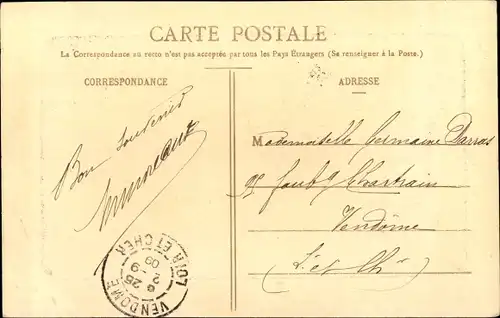 CARTE POSTALE
La Correspondance au recto n'est pas acceptée par tous les Pays Étrangers (Se renseigner à la Poste.)
CORRESPONDANCE
ADRESSE
Bon souvenir
Mademoiselle Germaine Darras
Faubg Chartrain
Vendôme
L. et Ch.
VENDOME
LOIR-ET-CHER
6 25
2 -9
09